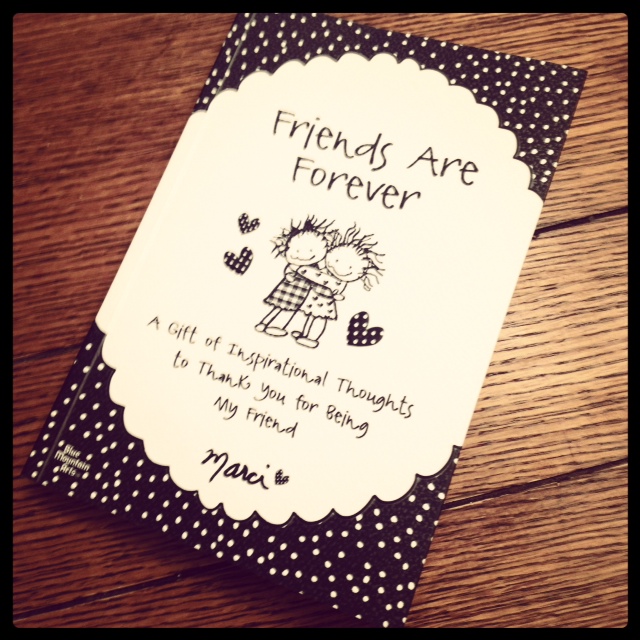 Friends Are
Forever
A Gift of Inspirational Thoughts
to Thank You for Being
My Friend
Marci
Blue
Mountain
Arts